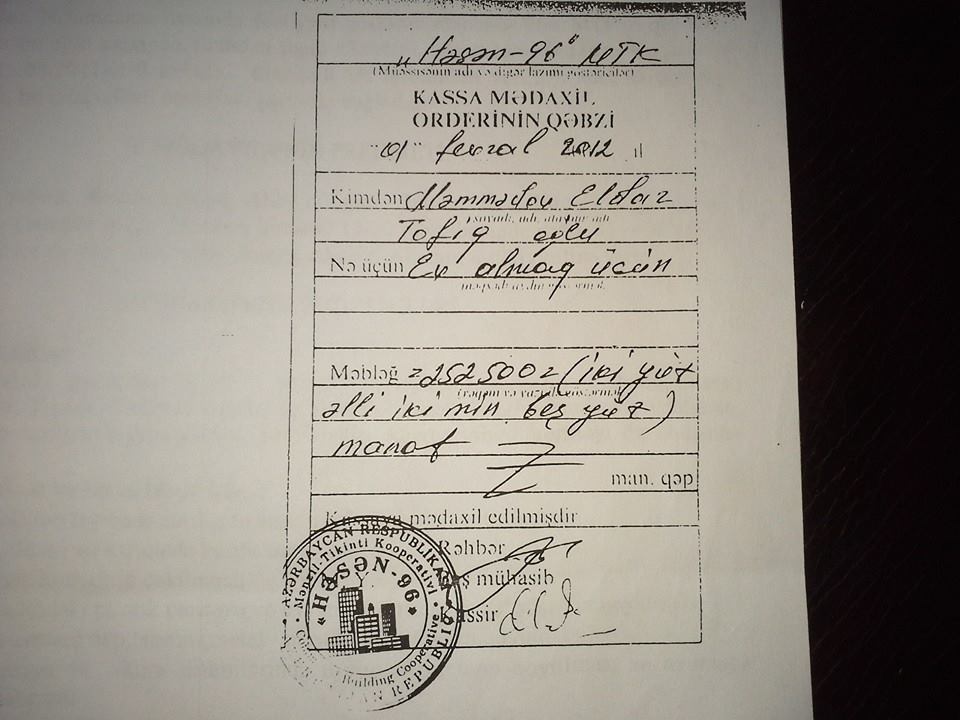 „Həsən-96" MTK
(Müəssisənin adı və digər lazımi göstəricilər)
KASSA MƏDAXİL
ORDERİNİN QƏBZİ
"01" fevral 2012 il
Kimdən Məmmədov Eldar
(soyadı, adı, atasının adı)
Tofiq oğlu
Nə üçün Ev almaq üçün
Məbləğ =252500= (iki yüz
(rəqəm və yazı ilə göstərməli)
əlli iki min beş yüz)
manat
man. qəp
Kassaya mədaxil edilmişdir
Rəhbər
Baş mühasib
Kassir
AZƏRBAYCAN RESPUBLİKASI
Mənzil-Tikinti Kooperativi
«HƏSƏN-96»
Building Cooperative
REPUBLIC